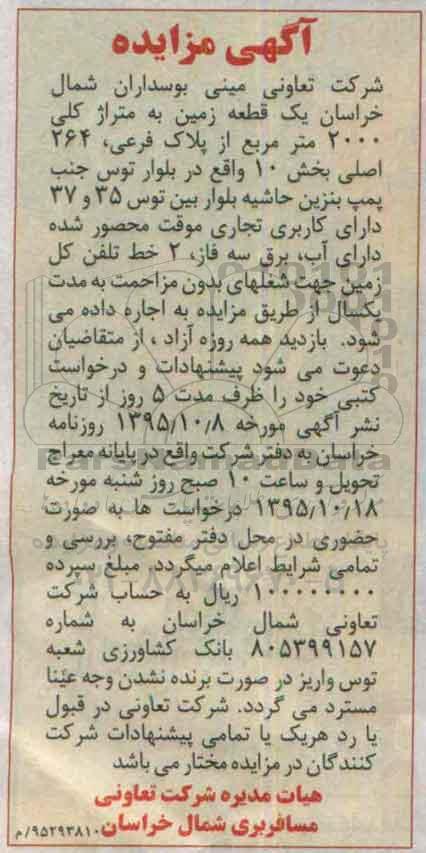 آگهی مزایده
شرکت تعاونی مینی بوسداران شمال
خراسان یک قطعه زمین به متراژ کلی
۲۰۰۰ متر مربع از پلاک فرعی، ۲۶۴
اصلی بخش ۱۰ واقع در بلوار توس جنب
پمپ بنزین حاشیه بلوار بین توس ۳۵ و ۳۷
دارای کاربری تجاری موقت محصور شده
دارای آب، برق سه فاز، ۲ خط تلفن کل
زمین جهت شغلهای بدون مزاحمت به مدت
یکسال از طریق مزایده به اجاره داده می
شود. بازدید همه روزه آزاد ، از متقاضیان
دعوت می شود پیشنهادات و درخواست
کتبی خود را ظرف مدت ۵ روز از تاریخ
نشر آگهی مورخه ۱۳۹۵/۱۰/۸ روزنامه
خراسان به دفتر شرکت واقع در پایانه معراج
تحویل و ساعت ۱۰ صبح روز شنبه مورخه
۱۳۹۵/۱۰/۱۸ درخواست ها به صورت
حضوری در محل دفتر مفتوح، بررسی و
تمامی شرایط اعلام میگردد. مبلغ سپرده
۱۰۰۰۰۰۰۰۰ ریال به حساب شرکت
تعاونی شمال خراسان به شماره
۸۰۵۳۹۹۱۵۷ بانک کشاورزی شعبه
توس واریز در صورت برنده نشدن وجه عیّنا
مسترد می گردد. شرکت تعاونی در قبول
یا رد هریک یا تمامی پیشنهادات شرکت
کنندگان در مزایده مختار می باشد
هیات مدیره شرکت تعاونی
مسافربری شمال خراسان
۹۵۲۹۳۸۱۰/م